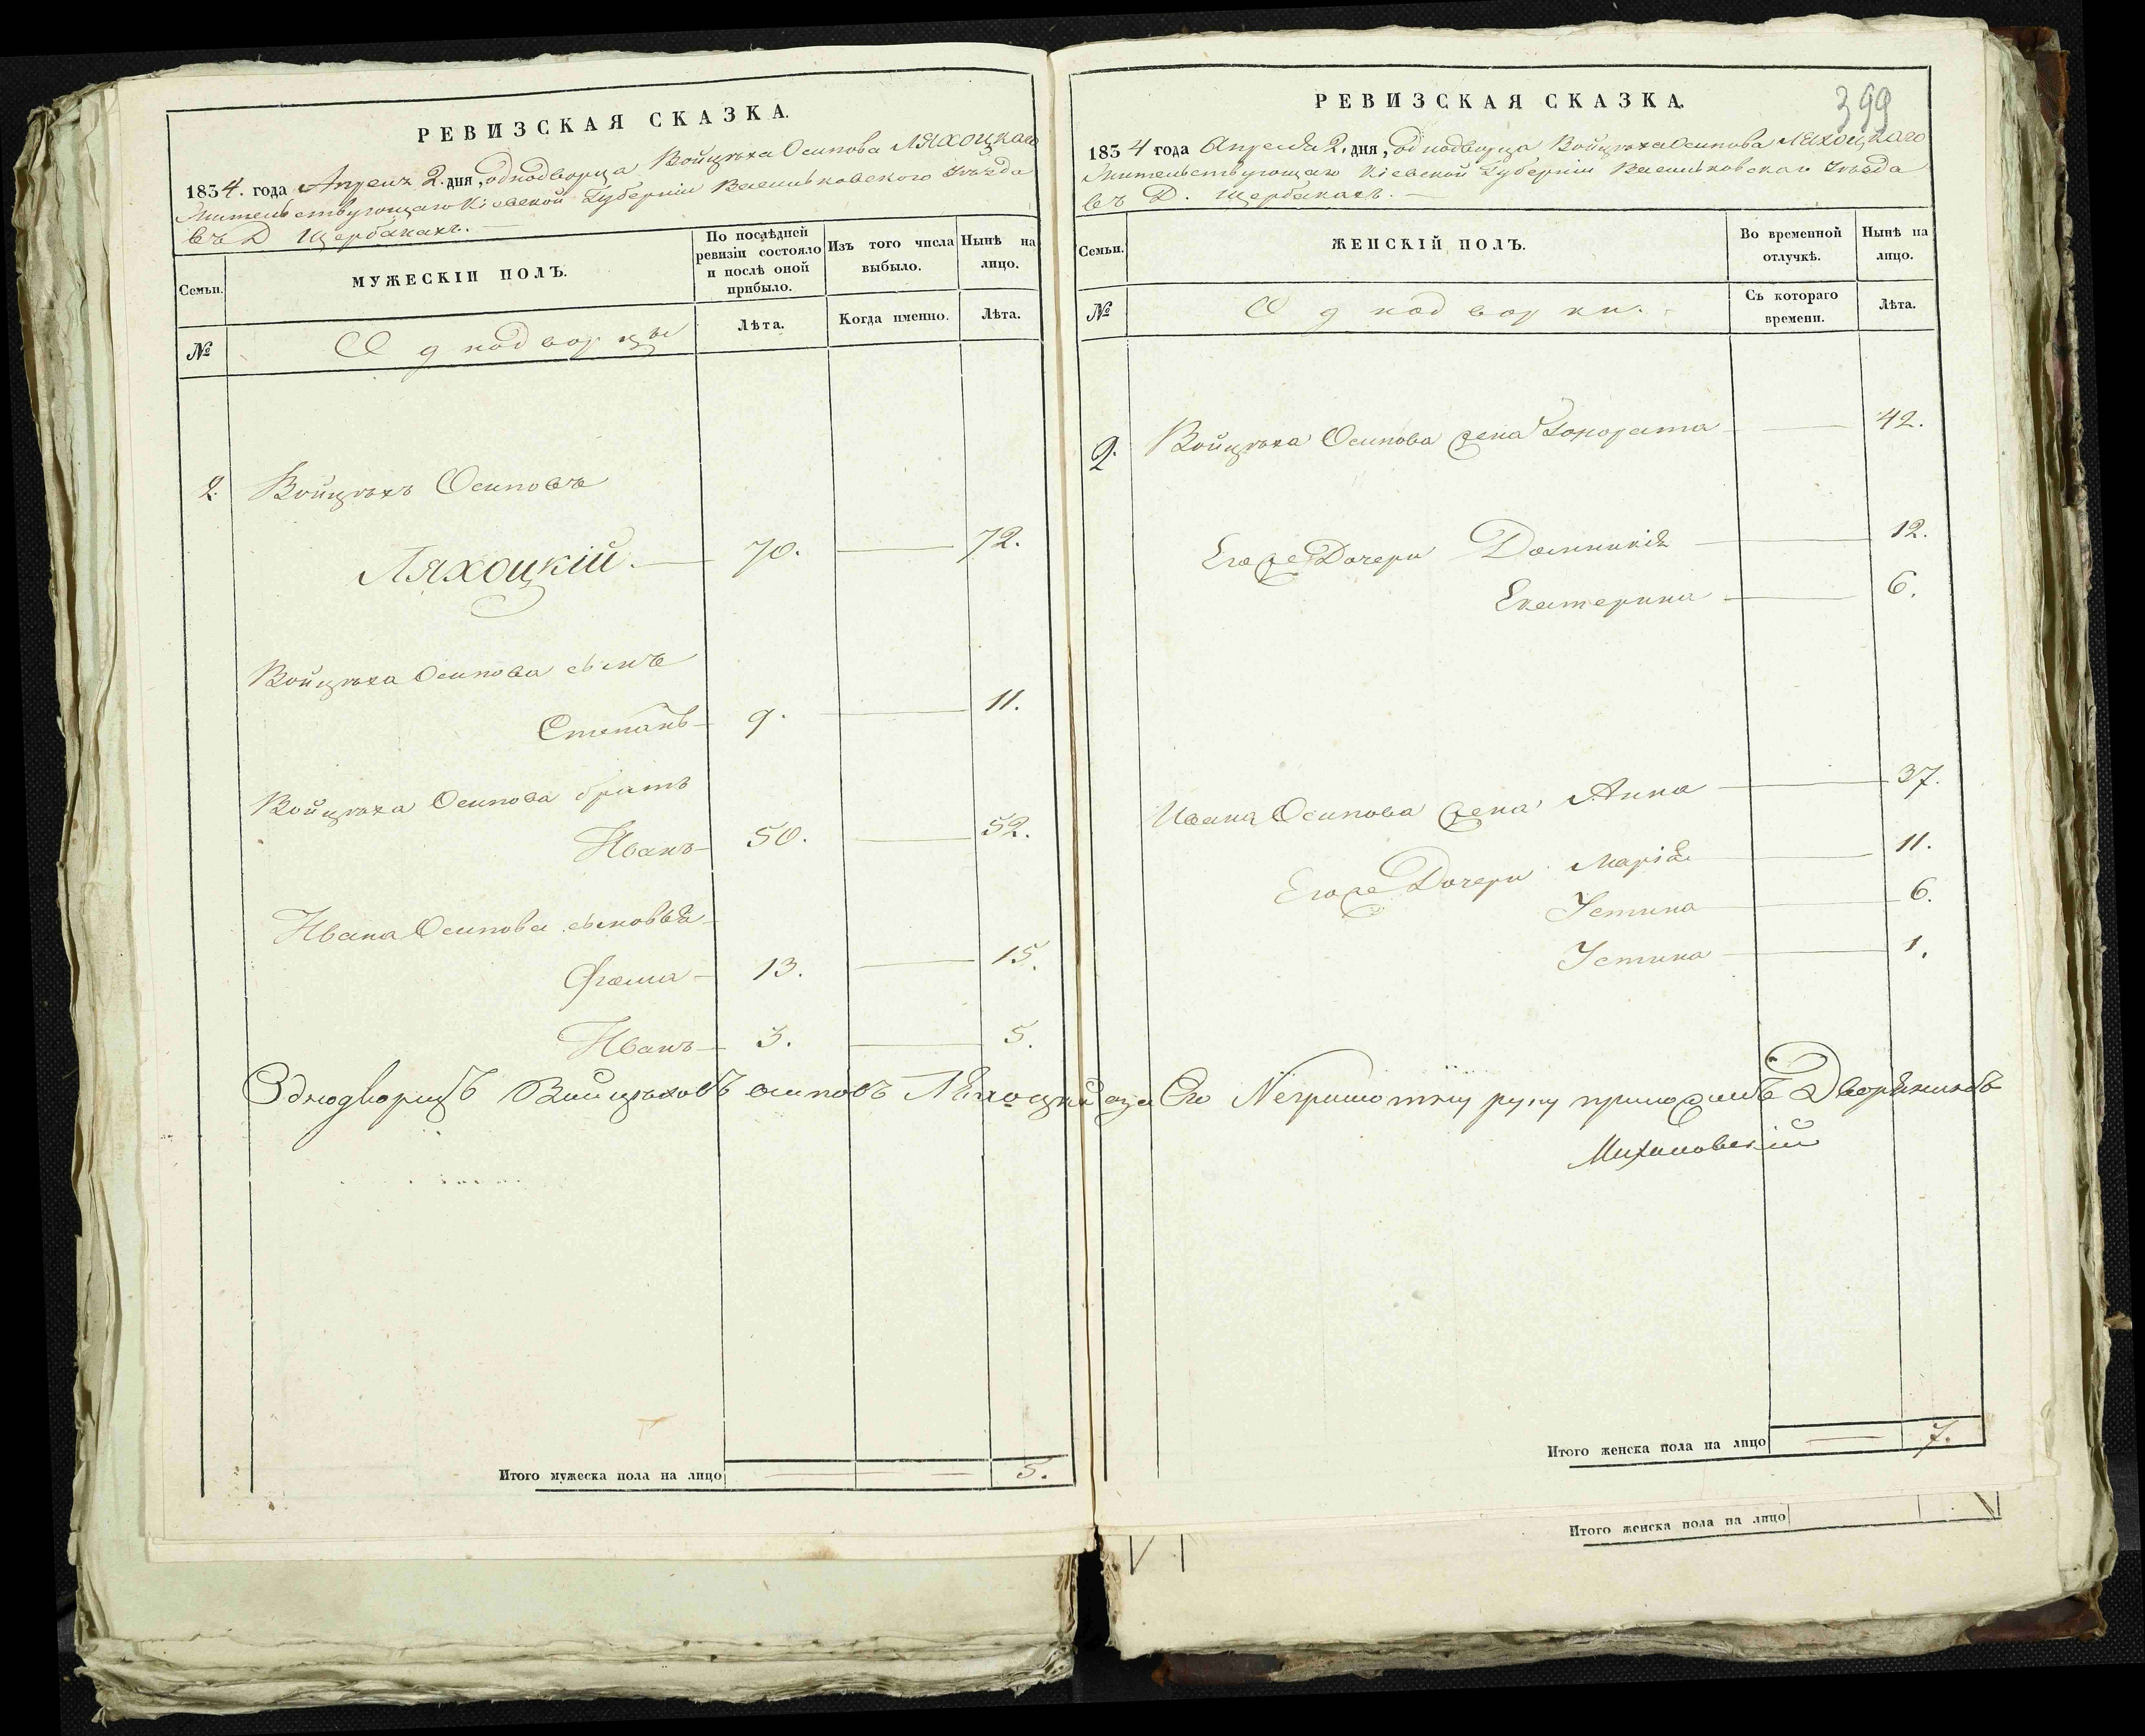 РЕВИЗСКАЯ СКАЗКА.
1834. года Апреля 2. дня, однодворца Войцѣха Осипова Ляхоцкаго
Жительствующаго Кіевской Губерніи Васильковского Уѣзда
въ Д Щербаках.
Семьи.
МУЖЕСКІЙ ПОЛЪ.
По послѣдней ревизіи состояло и послѣ оной прибыло.
Изъ того числа выбыло.
Нынѣ на лицо.
№
Однодворцы
Лѣта.
Когда именно.
Лѣта.
2. Войцѣхъ Осиповъ
Ляхоцкій. 70. 72.
Войцѣха Осипова сынъ
Степанъ 9. 11.
Войцѣха Осипова братъ
Иванъ 50. 52.
Ивана Осипова сыновья
Фома 13. 15.
Иванъ 3. 5.
Итого мужеска пола на лицо 5.
РЕВИЗСКАЯ СКАЗКА.
399
1834 года Апреля 2. дня, однодворца Войцѣха Осипова Ляхоцкаго
Жительствующаго Кіевской Губерніи Васильковскаго Уѣзда
въ Д. Щербакахъ.
Семьи.
ЖЕНСКІЙ ПОЛЪ.
Во временной отлучкѣ.
Нынѣ на лицо.
№
Однодворки.
Съ котораго времени.
Лѣта.
2. Войцѣха Осипова жена Гонората 42.
Егоже Дочери Доминикія 12.
Екатерина 6.
Ивана Осипова жена Анна 37.
Егоже Дочери Марія 11.
Устина 6.
Устина 1.
Однодворецъ Войцѣховъ осиповъ Ляхоцкій аза Его Неграмотну руку приложилъ Дворянинъ
Михаловскій
Итого женска пола на лицо 7.
Итого женска пола на лицо